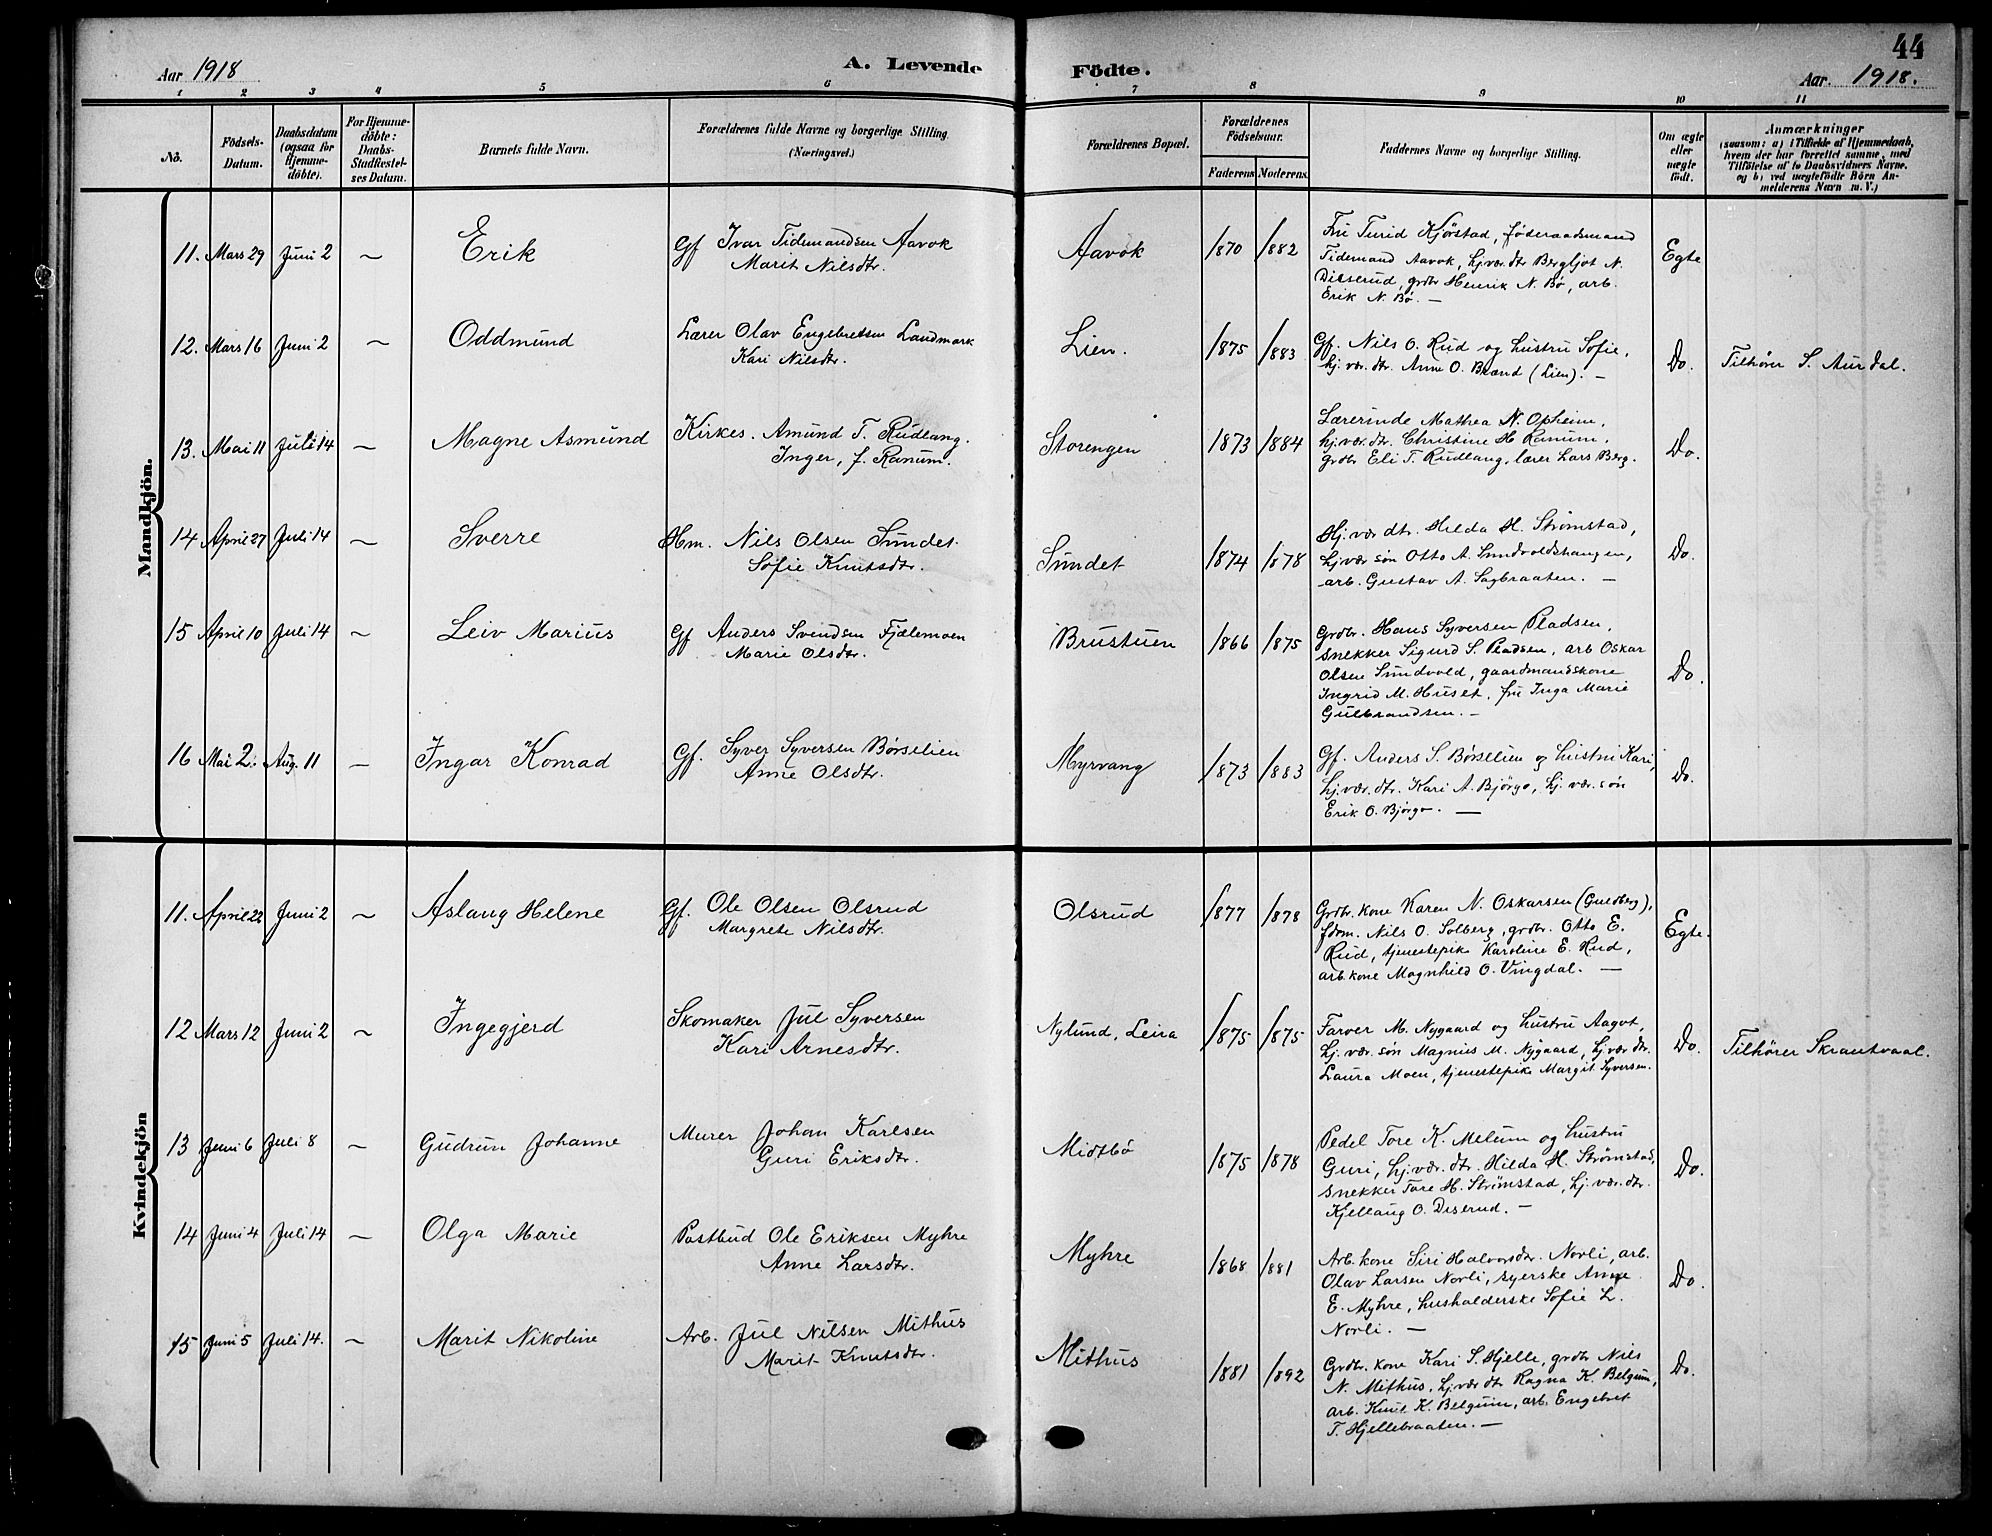 44
Aar 1918
A. Levende
Födte.
Aar. 1918.
1 2 3 4 5 6 7 8 9 10 11
No.
Födsels-
Datum.
Daabsdatum
(ogsaa for
Hjemme-
döbte).
For Hjemme-
döbte:
Daabs-
Stadfæstel-
ses Datum.
Barnets fulde Navn.
Forældrenes fulde Navne og borgerlige Stilling.
(Næringsvei.)
Forældrenes Bopæl.
Forældrenes
Födselsaar.
Faderens Moderens.
Faddernes Navne og borgerlige Stilling.
Om ægte
eller
uægte
født.
Anmærkninger
(saasom: a) i Tilfælde af Hjemmedaab,
hvem der har forrettet samme, med
Tilföielse af to Daabsvidners Navne.
og b) ved uægtefödte Börn An-
melderens Navn m. V.)
Mandkjön.
11. Mars 29 Juni 2 — Erik
Gf Ivar Tidemandsen Aavok
Marit Nilsdtr.
Aavok 1870 1882
Fru Turid Kjörstad, föderaadsmand
Tidemand Aavok, hj.vær.dtr Bergljot N.
Disserud, grdbr Henrik N. Bø, arb.
Erik N. Bø. —
Egte
12. Mars 16 Juni 2 — Oddmund
Lærer Olav Engebretsen Landmark
Kari Nilsdtr.
Lien. 1875 1883
Gf. Nils O. Rud og hustru Sofie,
hj.vær.dtr. Anne O. Brænd (Lien). —
Do. Tilhører S. Aurdal.
13. Mai 11 Juli 14 — Magne Asmund
Kirkes. Amund T. Rudlang.
Inger, f. Ranum.
Storengen 1873 1884
Lærerinde Mathea N. Opheim,
hj.vær.dtr. Christine H. Ranum,
grdbr Eli T. Rudlang, lærer Lars Berg.
Do.
14 April 27 Juli 14 — Sverre
Hm. Nils Olsen Sundet.
Sofie Knutsdtr.
Sundet 1874 1878
Hj.vær dtr. Hilda H. Strømstad,
hj.vær søn Otto A. Sundvoldshaugen,
arb. Gustav A. Sagbraaten. —
Do.
15 April 10 Juli 14 — Leiv Marius
Gf Anders Svendsen Fjælemoen
Marie Olsdtr.
Brustuen 1866 1875
Grdbr. Hans Syversen Pladsen,
snekker Sigurd S. Pladsen, arb Oskar
Olsen Sundvold, gaardmandskone
Ingrid M. Huset, fru Inga Marie
Gulbrandsen. —
Do.
16 Mai 2. Aug. 11 — Ingar Konrad
Gf. Syver Syversen Børselien
Anne Olsdtr.
Myrvang 1873 1883
Gf. Anders S. Børselien og hustru Kari,
hj.vær.dtr. Kari A. Bjørgo, hj. vær. søn
Erik O. Bjørgo. —
Do.
Kvindekjön
11. April 22 Juni 2 — Aslaug Helene
Gf. Ole Olsen Olsrud
Margrete Nilsdtr.
Olsrud 1877 1878
Grdbr. kone Karen N. Oskarsen (Guldberg),
fdrm. Nils O. Solberg, grdbr. Otto E.
Rud, tjenestepike Karoline E. Rud,
arb.kone Magnhild O. Vingdal. —
Egte.
12 Mars 12 Juni 2 — Ingegjerd
Skomaker Jul Syversen
Kari Arnesdtr.
Nylund, Leira 1875 1875
Farver M. Nygaard og hustru Aagot,
hj. vær. søn Magnus M. Nygaard, hj.vær dtr.
Laura Moen, tjenestepike Margit Syversen.
Do. Tilhører Skrautvaal.
13 Juni 6 Juli 8 — Gudrun Johanne
Murer Johan Karlsen
Guri Eriksdtr.
Midtbø 1875 1878
Pedel Tore K. Melum og hustru
Guri, hj.vær. dtr. Hilda H. Strømstad,
snekker Tore H. Strømstad, hj. vær. dtr.
Kjellaug O. Diserud. —
Do.
14 Juni 4 Juli 14 — Olga Marie
Postbud Ole Eriksen Myhre
Anne Larsdtr.
Myhre 1868 1881
Arb. kone Siri Halvorsdtr. Norli, arb.
Olav Larsen Norli, syerske Anne
E. Myhre, husholderske Sofie L.
Norli. —
Do.
15 Juni 5 Juli 14. — Marit Nikoline
Arb. Jul Nilsen Mithus
Marit Knutsdtr.
Mithus 1881 1892
Grdbr. kone Kari S. Hjelle, grdbr Nils
N. Mithus, hj.vær dtr Ragna K. Belgum,
arb. Knut K. Belgum, arb. Engebret
T. Hjellebraaten. —
Do.